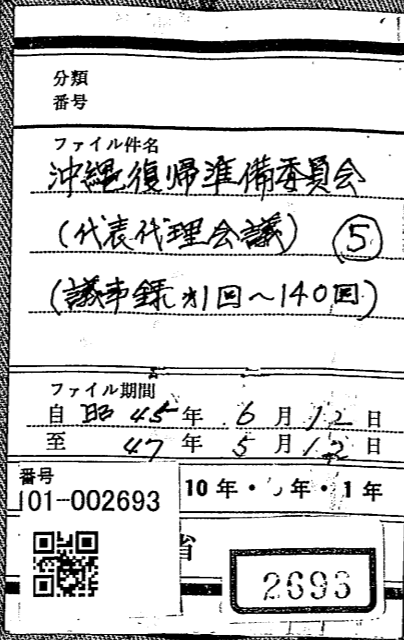 分類
番号
ファイル件名
沖縄復帰準備委員会
(代表代理会議) ⑤
(議事録 オ1回~140回)
ファイル期間
自 昭 45年 6月 12日
至 47年 5月 12日
番号
101-002693
10年・5年・1年
省
2693